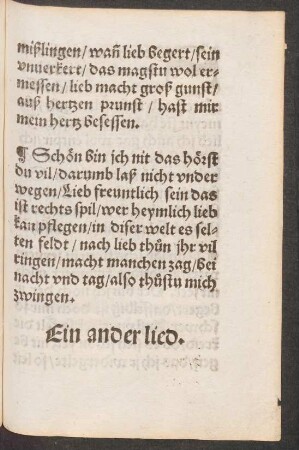 mißlingen/ wañ lieb begert/ sein
vnuerkert/ das magstu wol er-
messen/ lieb macht groß gunst/
auß hertzen prunst/ hast mir
mein hertz besessen.
¶ Schön bin jch nit das hörst
du vil/ darumb laß nicht vnder
wegen/ Lieb freuntlich sein das
ist rechts spil/ wer heymlich lieb
kan pflegen/ in diser welt es sel-
ten feldt/ nach lieb thůn jhr vil
ringen/ macht manchen zag/ bei
nacht vnd tag/ also thůstu mich
zwingen.
Ein ander lied.